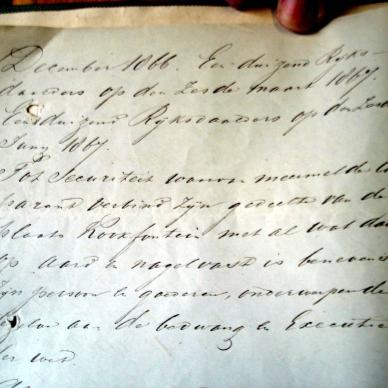 December 1866. Een duizend Ryks-
daalders op den Zesde maart 1867.
Eensduizend Ryksdaalders op den Zes
Juny 1867.
Tot Securiteit waarvan meermelde
verbind zyn gedeelte van de
plaats met al wat daar
op aard & nagelvast is benevens
zyn persoon & goederen, onderwerpende
aan de bedwang & Executie
der wet.